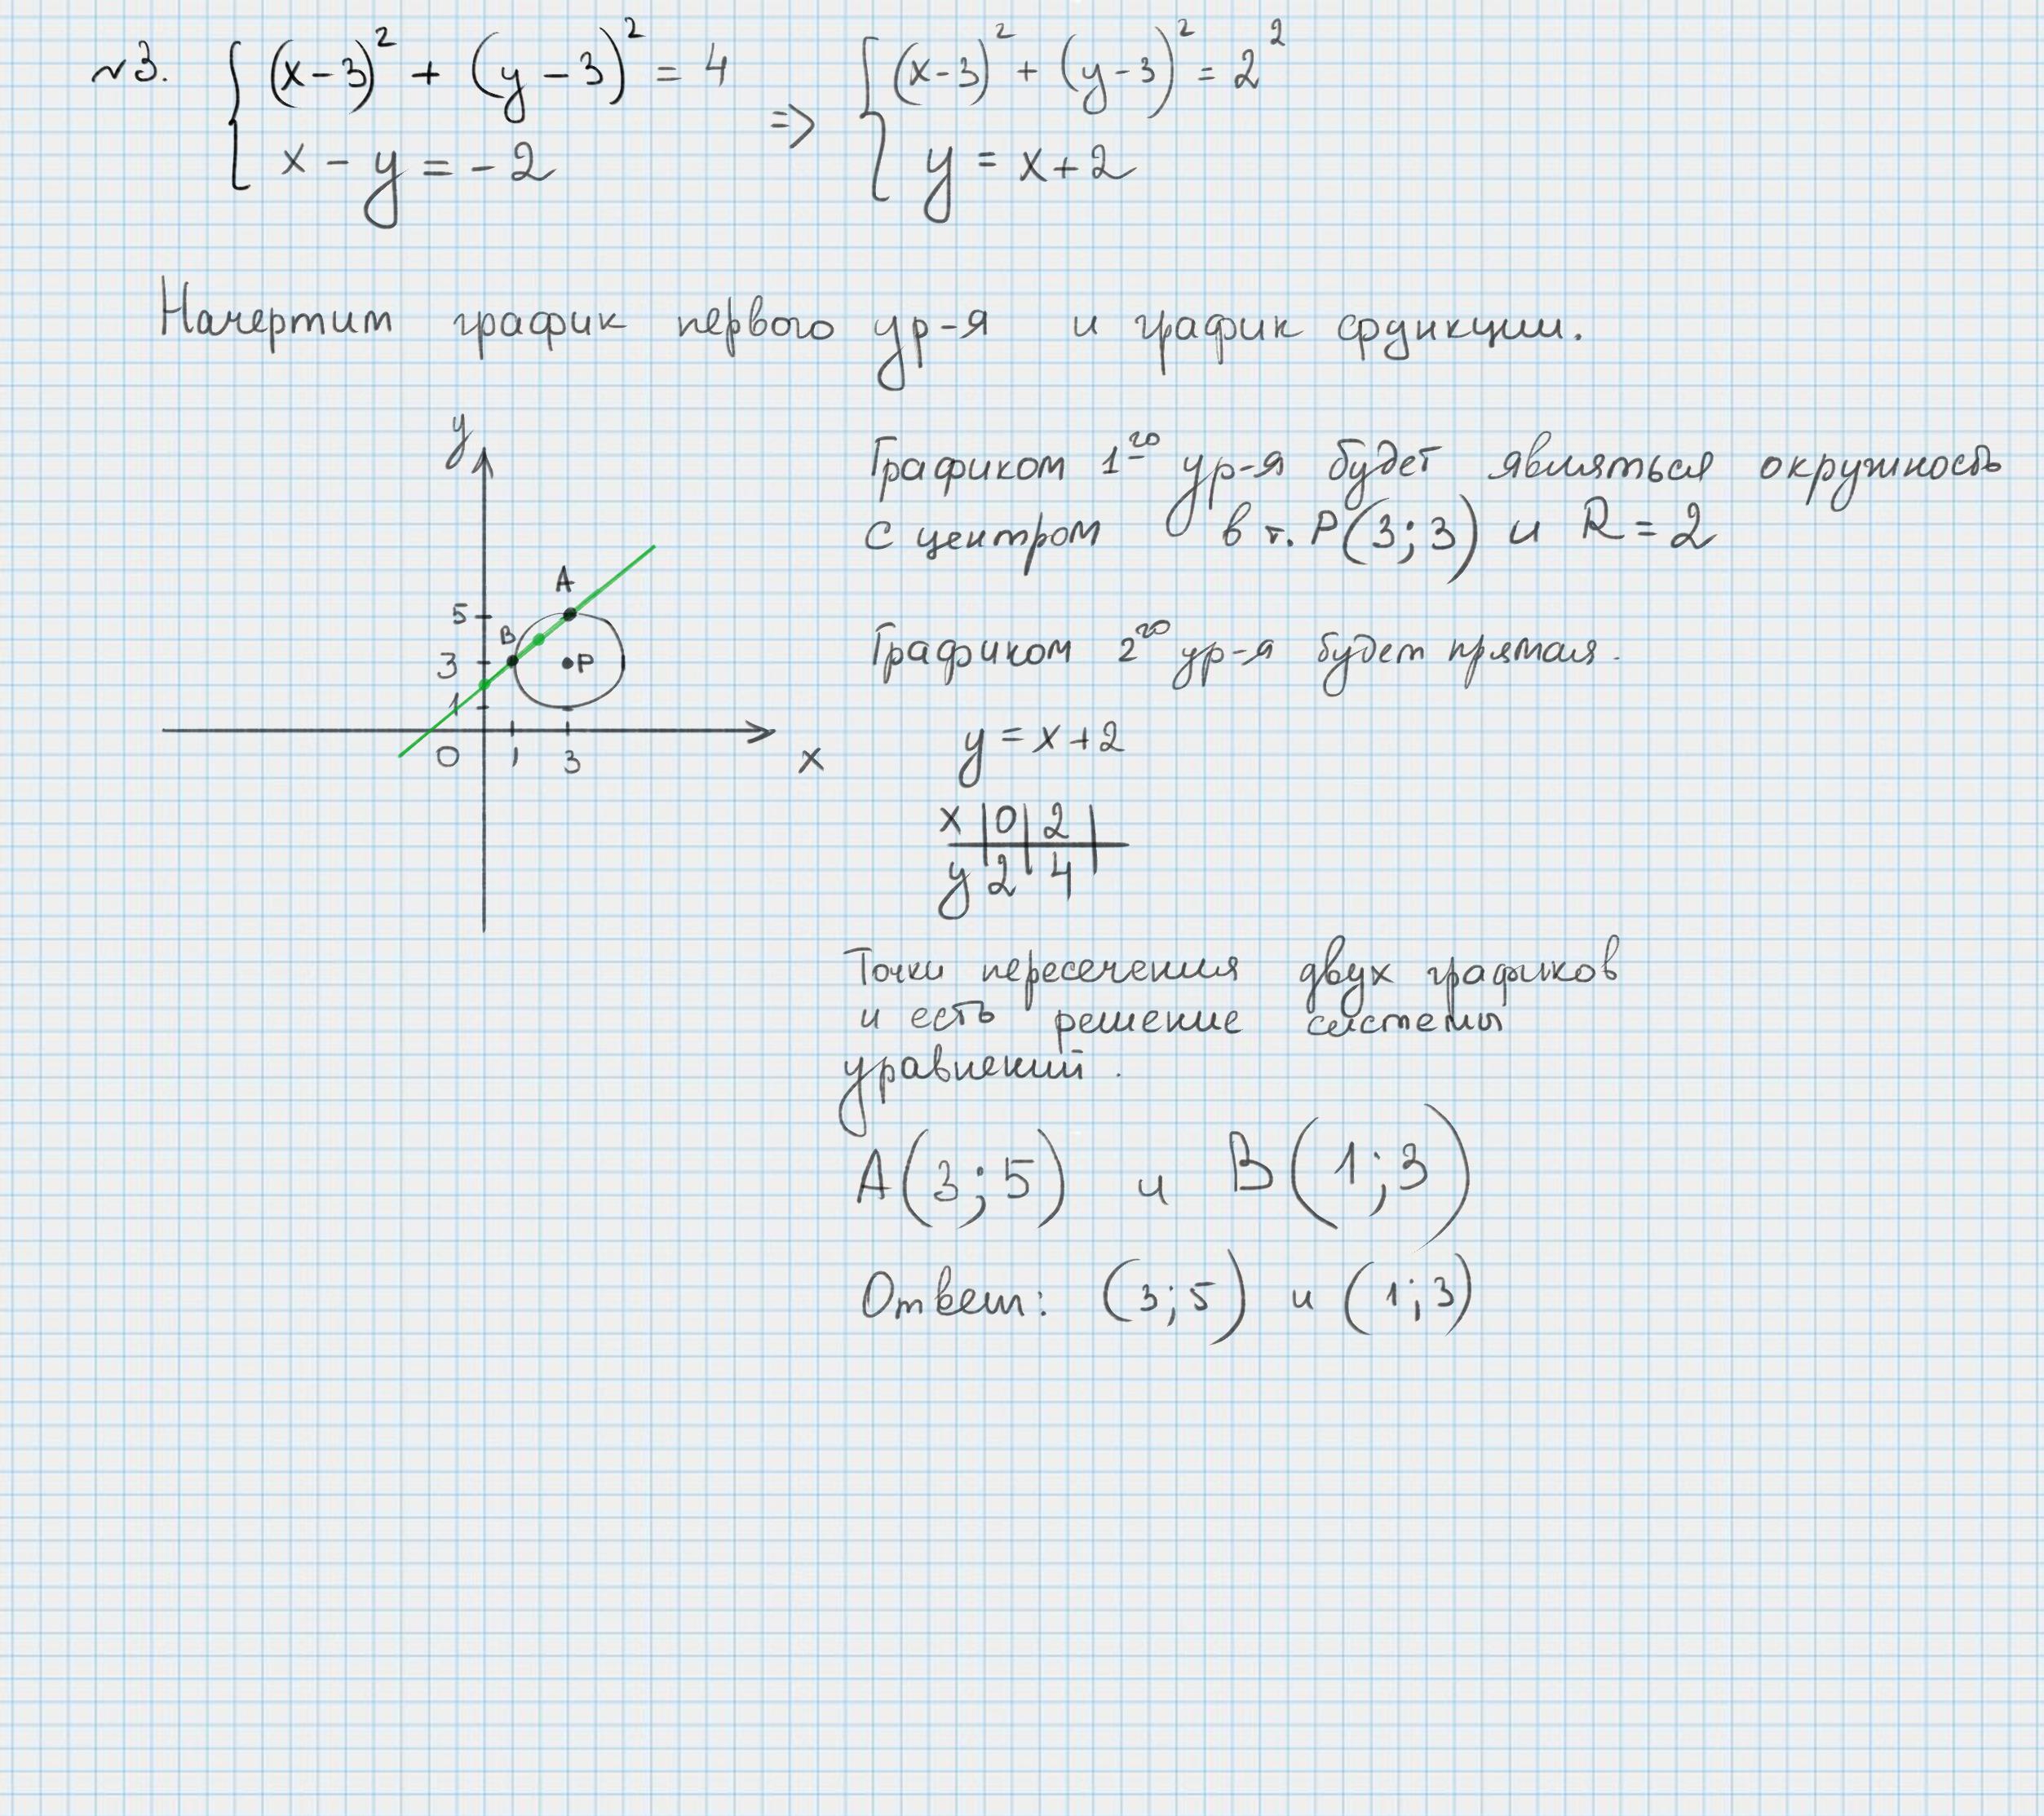 №3. { (x-3)² + (y-3)² = 4 => { (x-3)² + (y-3)² = 2²
x - y = -2 y = x+2
Начертим график первого ур-я и график функции.
y
A
5
B
3
P
1
0 1 3 x
Графиком 1го ур-я будет являться окружность
с центром в т. P(3;3) и R = 2
Графиком 2го ур-я будет прямая.
y = x+2
x | 0 | 2 |
y | 2 | 4
Точки пересечения двух графиков
и есть решение системы
уравнений.
A(3;5) и B(1;3)
Ответ: (3;5) и (1;3)